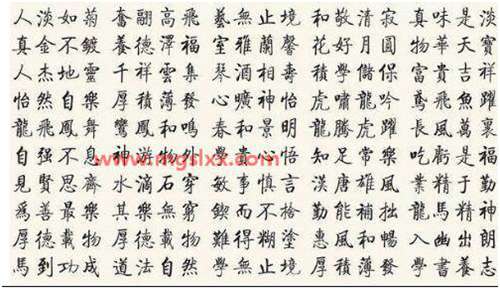 人淡如菊奮翩高飛藝無止境和敬清寂真味是淡
真金不鍍養德澤福室雅蘭馨花好月圓物華天寶
人杰地靈千祥雲集琴酒相壽積學儲保富貴吉祥
怡然自樂厚積薄發心曠神怡虎嘯龍吟鳶飛魚躍
龍飛鳳舞鸞鳳和鳴春和景明龍騰虎躍長風萬裏
自强不息神游物外學貴心悟知足常樂吃虧是福
www.mgslxx.com
見賢思齊水滴石穿敏事慎言漢唐雄風業精于勤
爲善最樂其樂無窮鍥而不捨勤能補拙龍馬精神
厚德載物難得糊塗惠風和暢入幽出朗
馬到功成道法自然學無止境厚積薄發學書養志